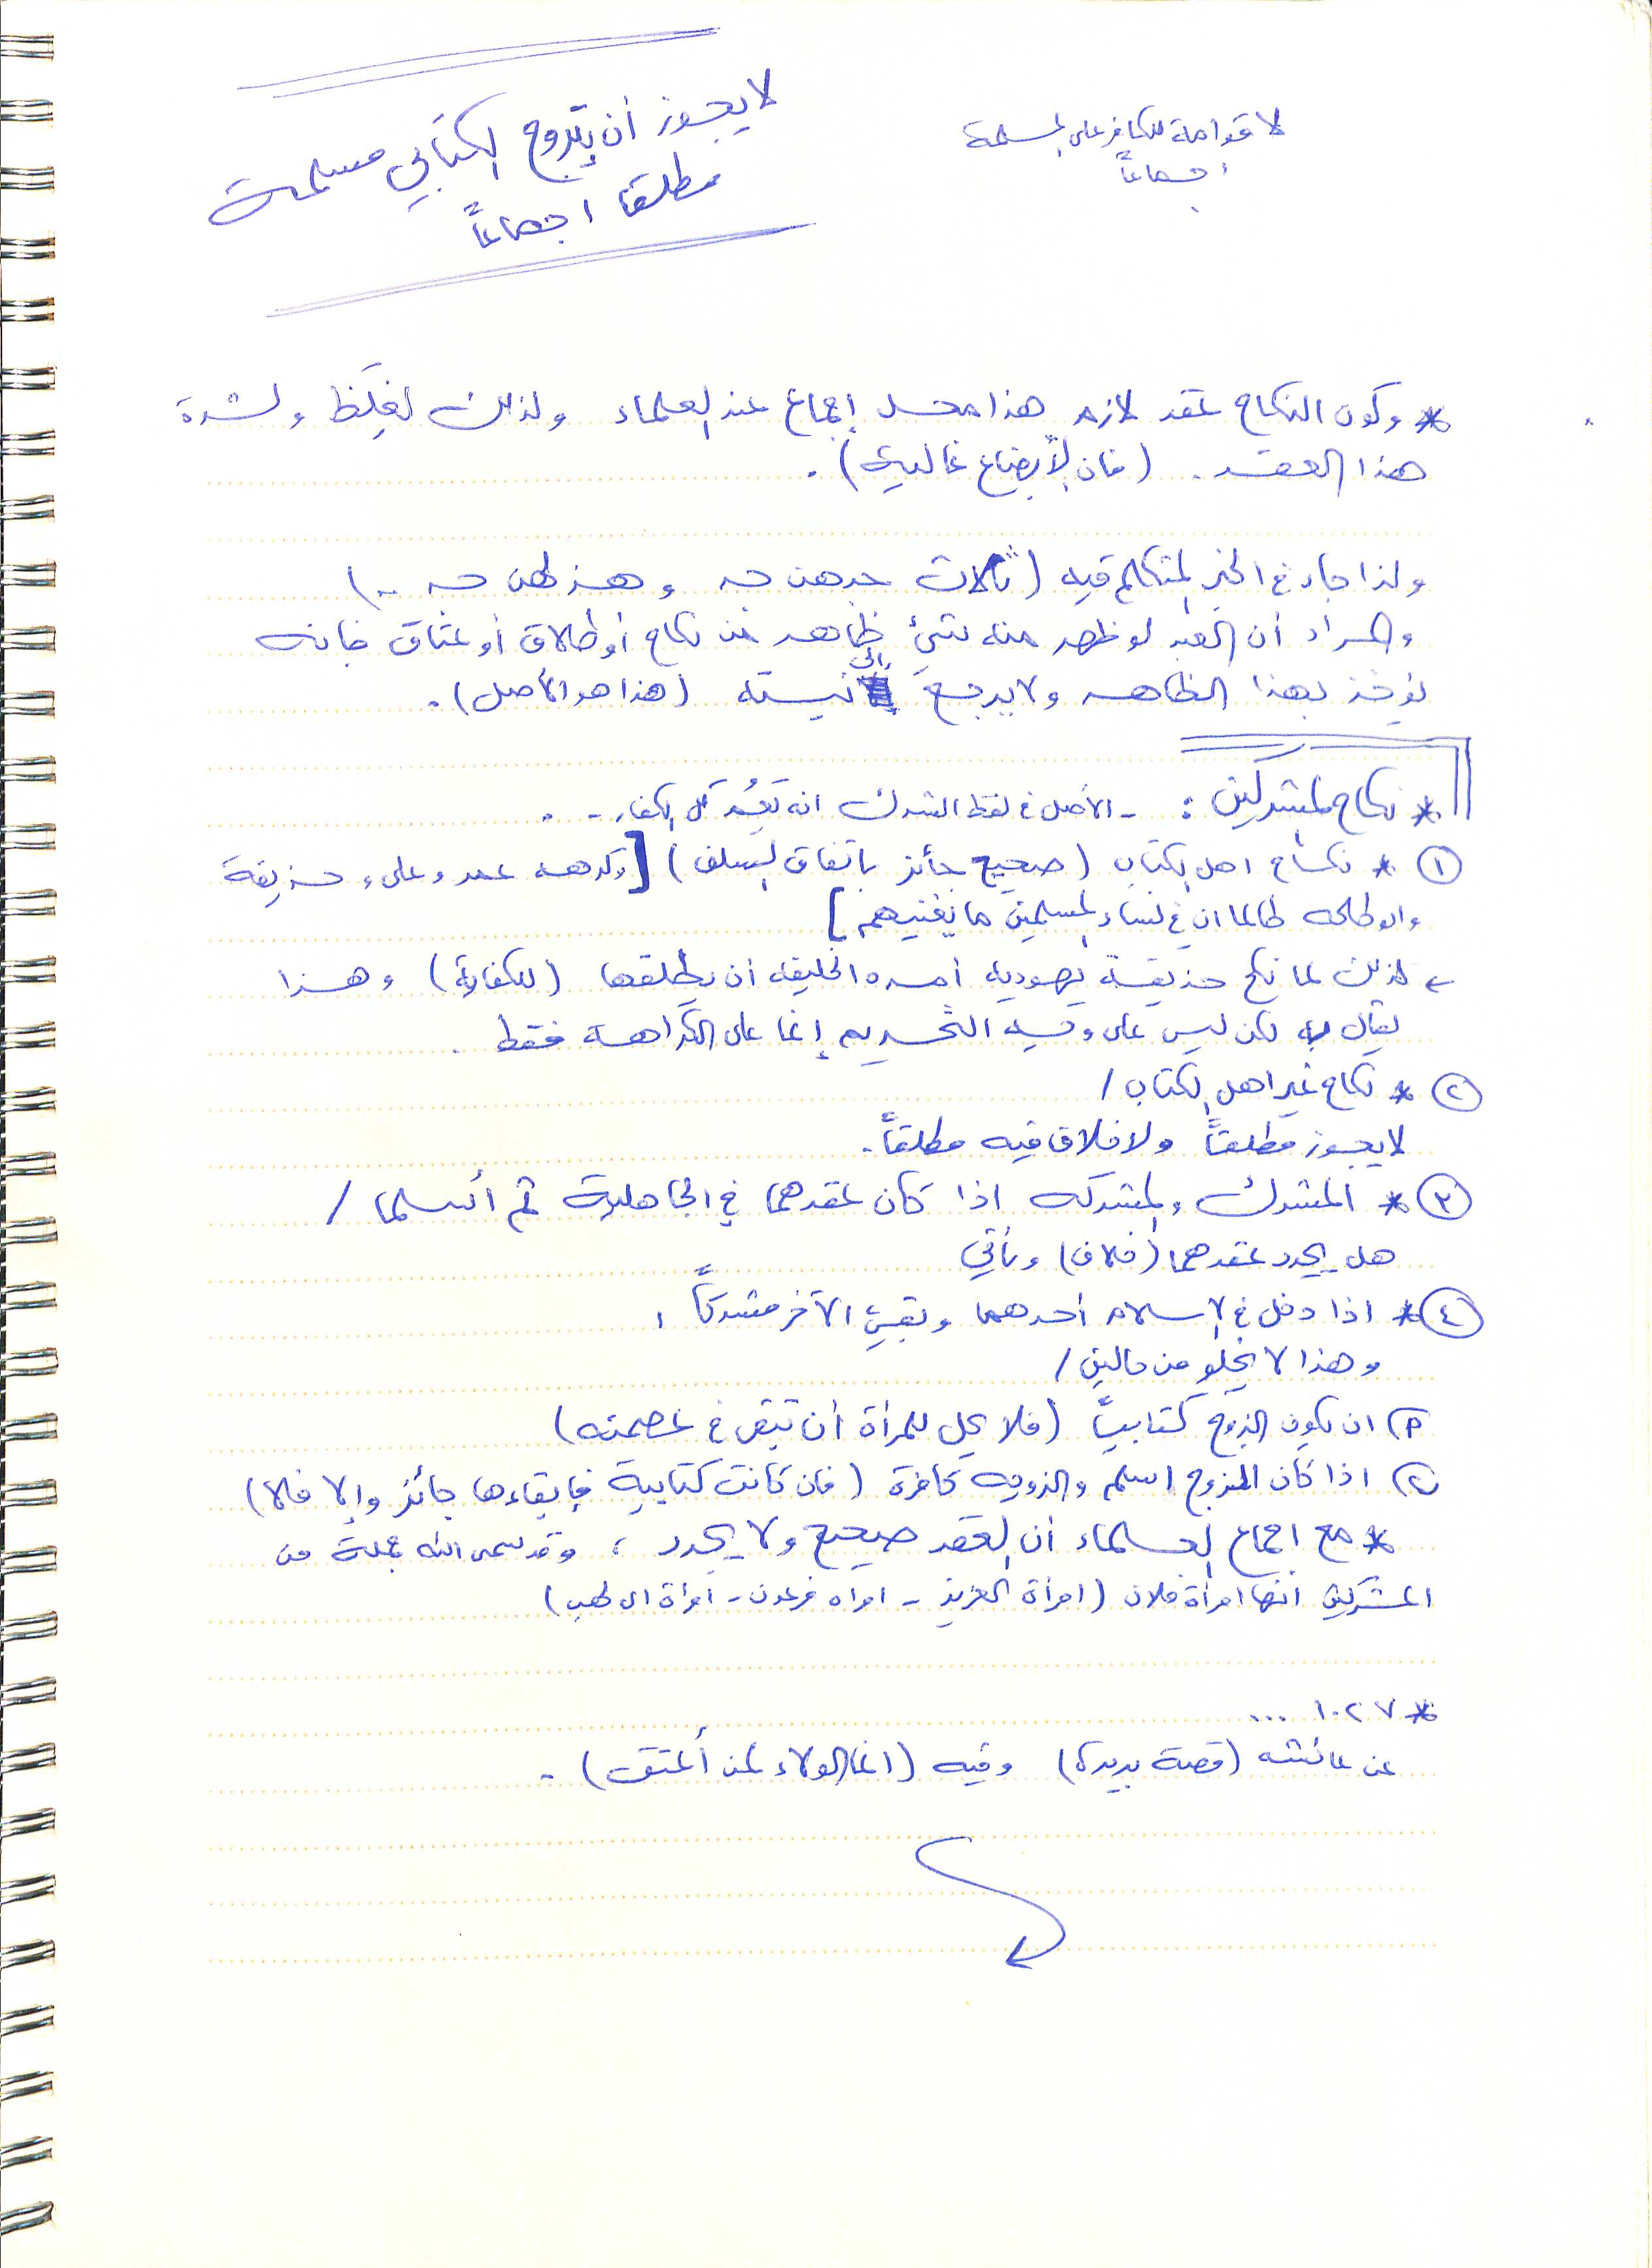 لا قوامة للكافر على المسلمة
اجماعاً
لا يجوز أن يتزوج الكتابي مسلمة
مطلقا اجماعاً
* وكون النكاح عقد لازم هذا محل إجماع عند العلماء ولذلك لغِلَظ ولشدة
هذا العقد . (فان الأبضاع غالية) .
ولذا جاء في الخبر المتكلم فيه (ثلاث جدهن جد وهزلهن جد ..)
والمراد أن العبد لو ظهر منه شيئ ظاهر من نكاح أو طلاق أو عتاق فانه
يؤخذ بهذا الظاهر ولا يرجع الى نيته (هذا هو الأصل) .
* نكاح المشركين : - الأصل في لفظ الشرك انه يَعُم كل الكفار - .
١ * نكاح اهل الكتاب (صحيح جائز باتفاق السلف) [وكرهه عمر وعلي وحذيفة
وابو طلحه طالما ان في نساء المسلمين ما يغنيهم]
← لذلك لما نكح حذيفة يهودية أمره الخليفه ان يطلقها (للكفاية) وهذا
يقال به لكن ليس على وجه التحريم إنما على الكراهة فقط .
٢ * نكاح غير اهل الكتاب /
لا يجوز مطلقاً ولا خلاف فيه مطلقاً .
٣ * المشرك والمشركه اذا كان عقدهما في الجاهلية ثم أسلما /
هل يجدد عقدهما (خلاف) وتأتي
٤ * اذا دخل في الاسلام أحدهما وبقيَ الآخر مشركاً ،
وهذا لا يخلو من حالين /
P) ان يكون الزوج كتابياً (فلا يحل للمرأة أن تبقى في عصمته)
ب) اذا كان المزوج اسلم والزوجه كافرة (فان كانت كتابية فإبقاءها جائز وإلا فلا)
* مع اجماع العلماء أن العقد صحيح ولا يجدد ، وقد سمى الله جملة من
المشركين انها امرأة فلان (امرأة العزيز - امراه فرعون - امرأة ابي لهب)
* ١٠٢٧ ...
عن عائشه (قصة بريرة) وفيه (انما الولاء لمن أعتق) .